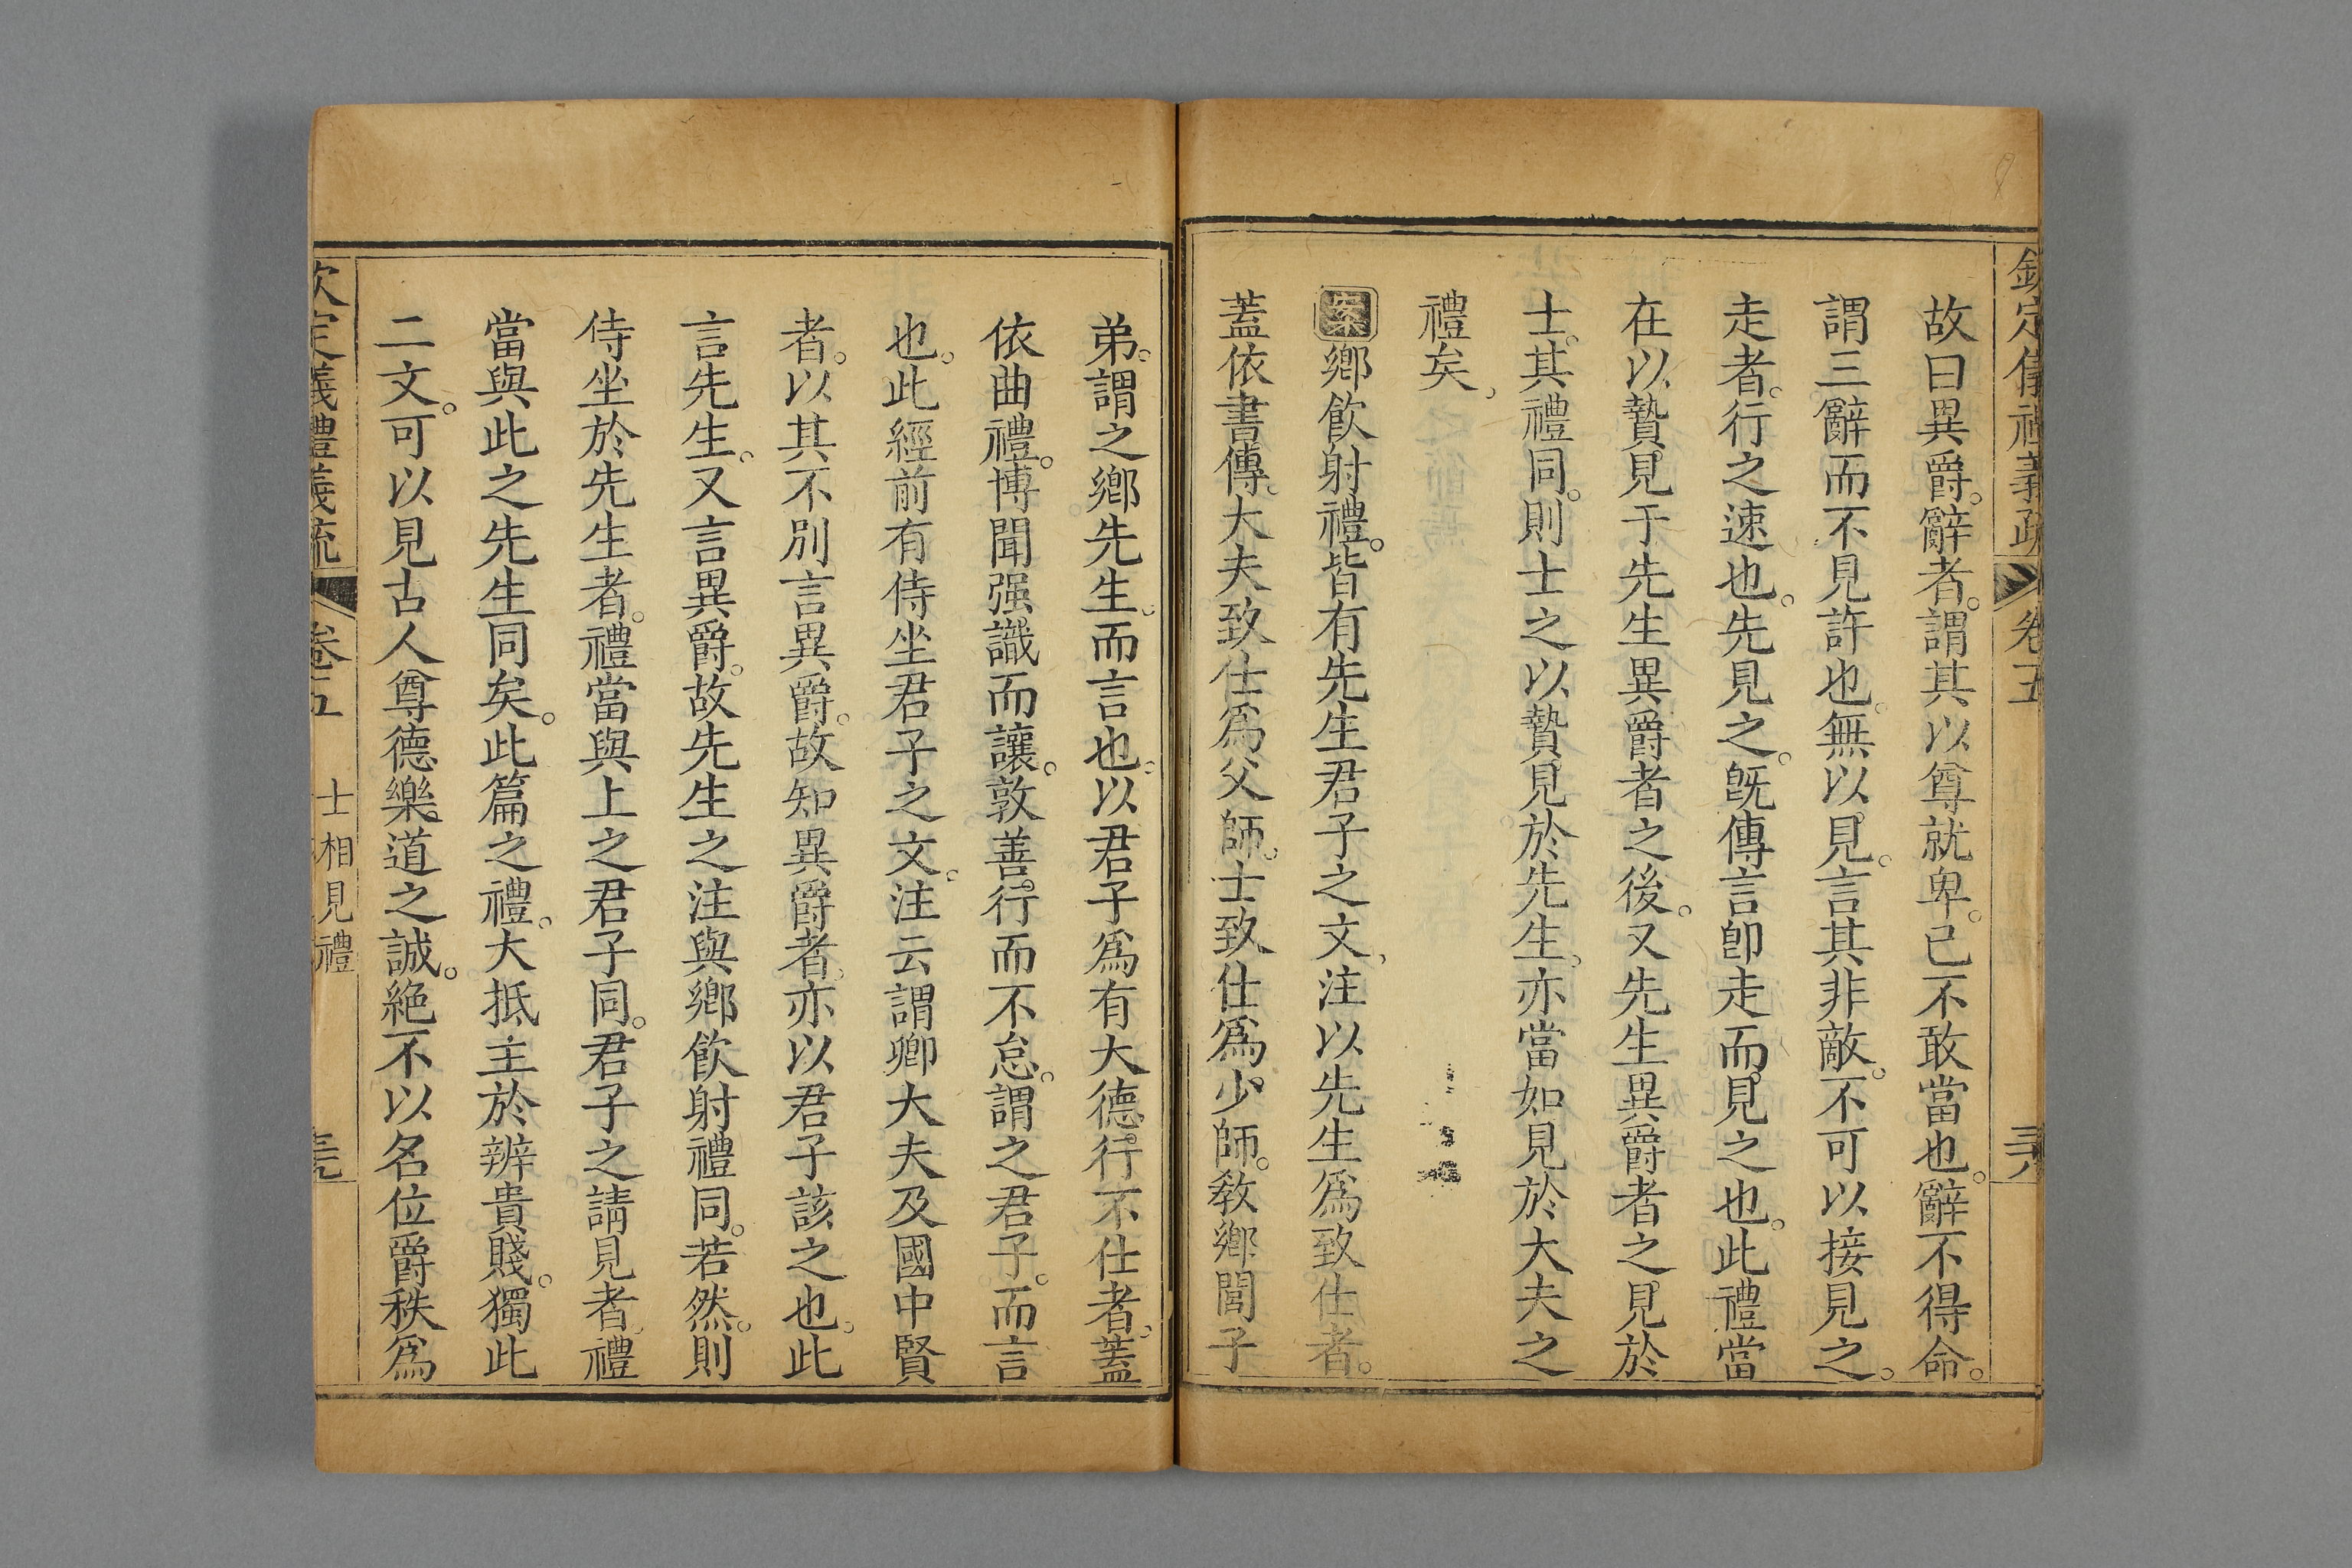 欽定儀禮義疏 卷五 三六
故曰異爵。辭者。謂其以尊就卑。已不敢當也。辭不得命。
謂三辭而不見許也。無以見。言其非敵。不可以接見之。
走者。行之速也。先見之。旣傳言卽走而見之也。此禮當
在以贄見于先生異爵者之後。又先生異爵者之見於
士。其禮同。則士之以贄見於先生。亦當如見於大夫之
禮矣、
案鄉飲射禮。皆有先生君子之文、注以先生爲致仕者。
蓋依書傳。大夫致仕爲父師。士致仕爲少師。敎鄉閭子
弟。謂之鄉先生。而言也。以君子爲有大德行不仕者。蓋
依曲禮。博聞强識而讓。敦善行而不怠。謂之君子。而言
也。此經前有侍坐君子之文。注云謂卿大夫及國中賢
者。以其不別言異爵。故知異爵者。亦以君子該之也。此
言先生。又言異爵。故先生之注與鄉飲射禮同。若然。則
侍坐於先生者。禮當與上之君子同。君子之請見者。禮
當與此之先生同矣。此篇之禮。大抵主於辨貴賤。獨此
二文。可以見古人尊德樂道之誠。絕不以名位爵秩爲
欽定義禮義疏 卷五 士相見禮